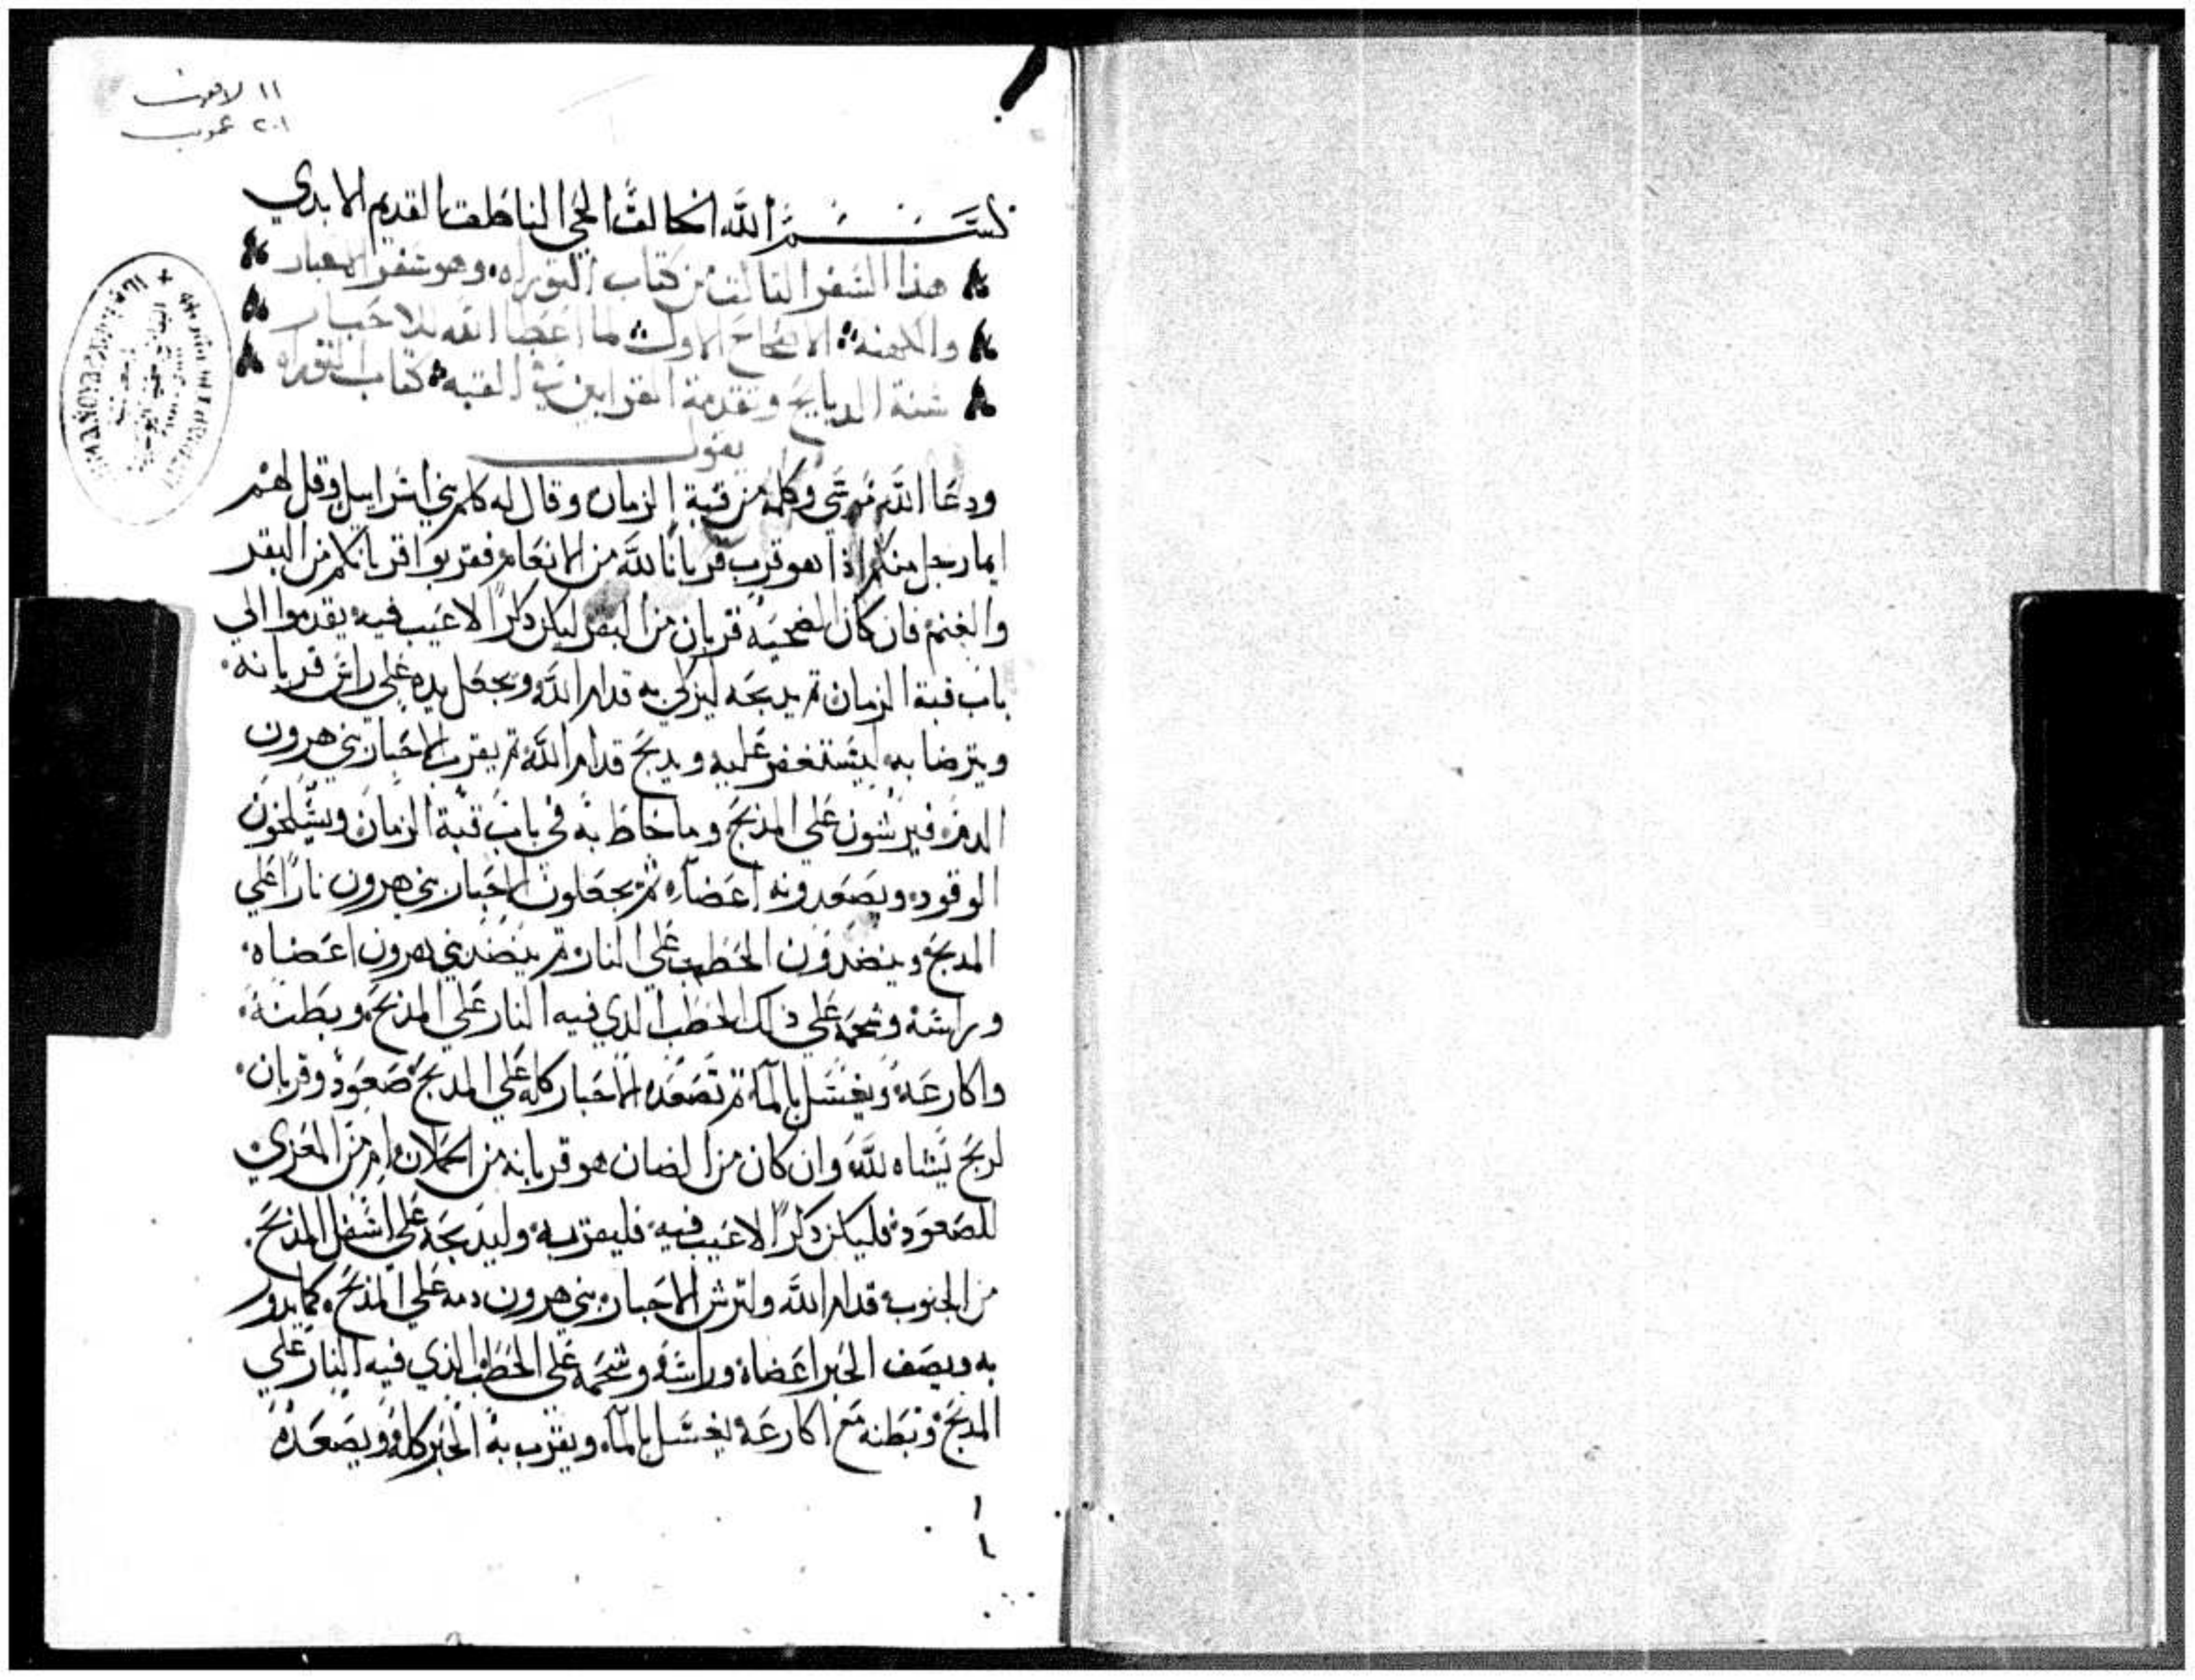 ١١ لاهوت
٢٠١ عمومي
بسم الله الخالق الحي الناطق القديم الابدي
هذا السفر التالت من كتاب التوراه وهو سفر الاحبار
والكهنه الاصحاح الاول لما اعطا الله للاحبار
سنة الدبايح وتقدمة القرابين في القبه كتاب التوراه
يقول
ودعا الله موسى وكلمه من قبة الزمان وقال له كلم بني اسراييل وقل لهم
ايما رجل منكم اذا هو قرب قربانا لله من الانعام فقربوا قربانكم من البقر
والغنم فان كان لضحيه قربان من البقر ليكن دكرا لا عيب فيه يقدموا الي
باب قبة الزمان تم يدبحه ليزكي به قدام الله ويجعل يده علي راس قربانه
ويترضا به ليستغفر عليه ويدبح قدام الله تم يقرب الاحبار بني هرون
الدم فيرشون علي المذبح وما حاط به في باب قبة الزمان ويسلخون
الوقود ويصعدونه اعضاه ثم يجعلون الاحبار بني هرون نارا علي
المدبح وينضدون الحطب علي النار تم ينضد بني هرون اعضاه
وراسه وشحمه علي ذلك الحطب الدي فيه النار علي المذبح وبطنه
واكارعه ويغسل بالمآ تم تصعده الاحبار كله علي المدبح صعود وقربان
لريح نساه لله وان كان من الضان هو قربانه من الحملان او من المعزي
للصعود فليكن دكرا لا عيب فيه فليقربه وليدبحه علي اسفل المذبح
من الجنوب قدام الله ولترش الاحبار بني هرون دمه علي المذبح كما يدور
به ويصف الحبر اعضاه وراسه وشحمه علي الحطب الذي فيه النار علي
المدبح وبطنه مع اكارعه يغسل بالمآ ويقرب به الحبر كله ويصعده